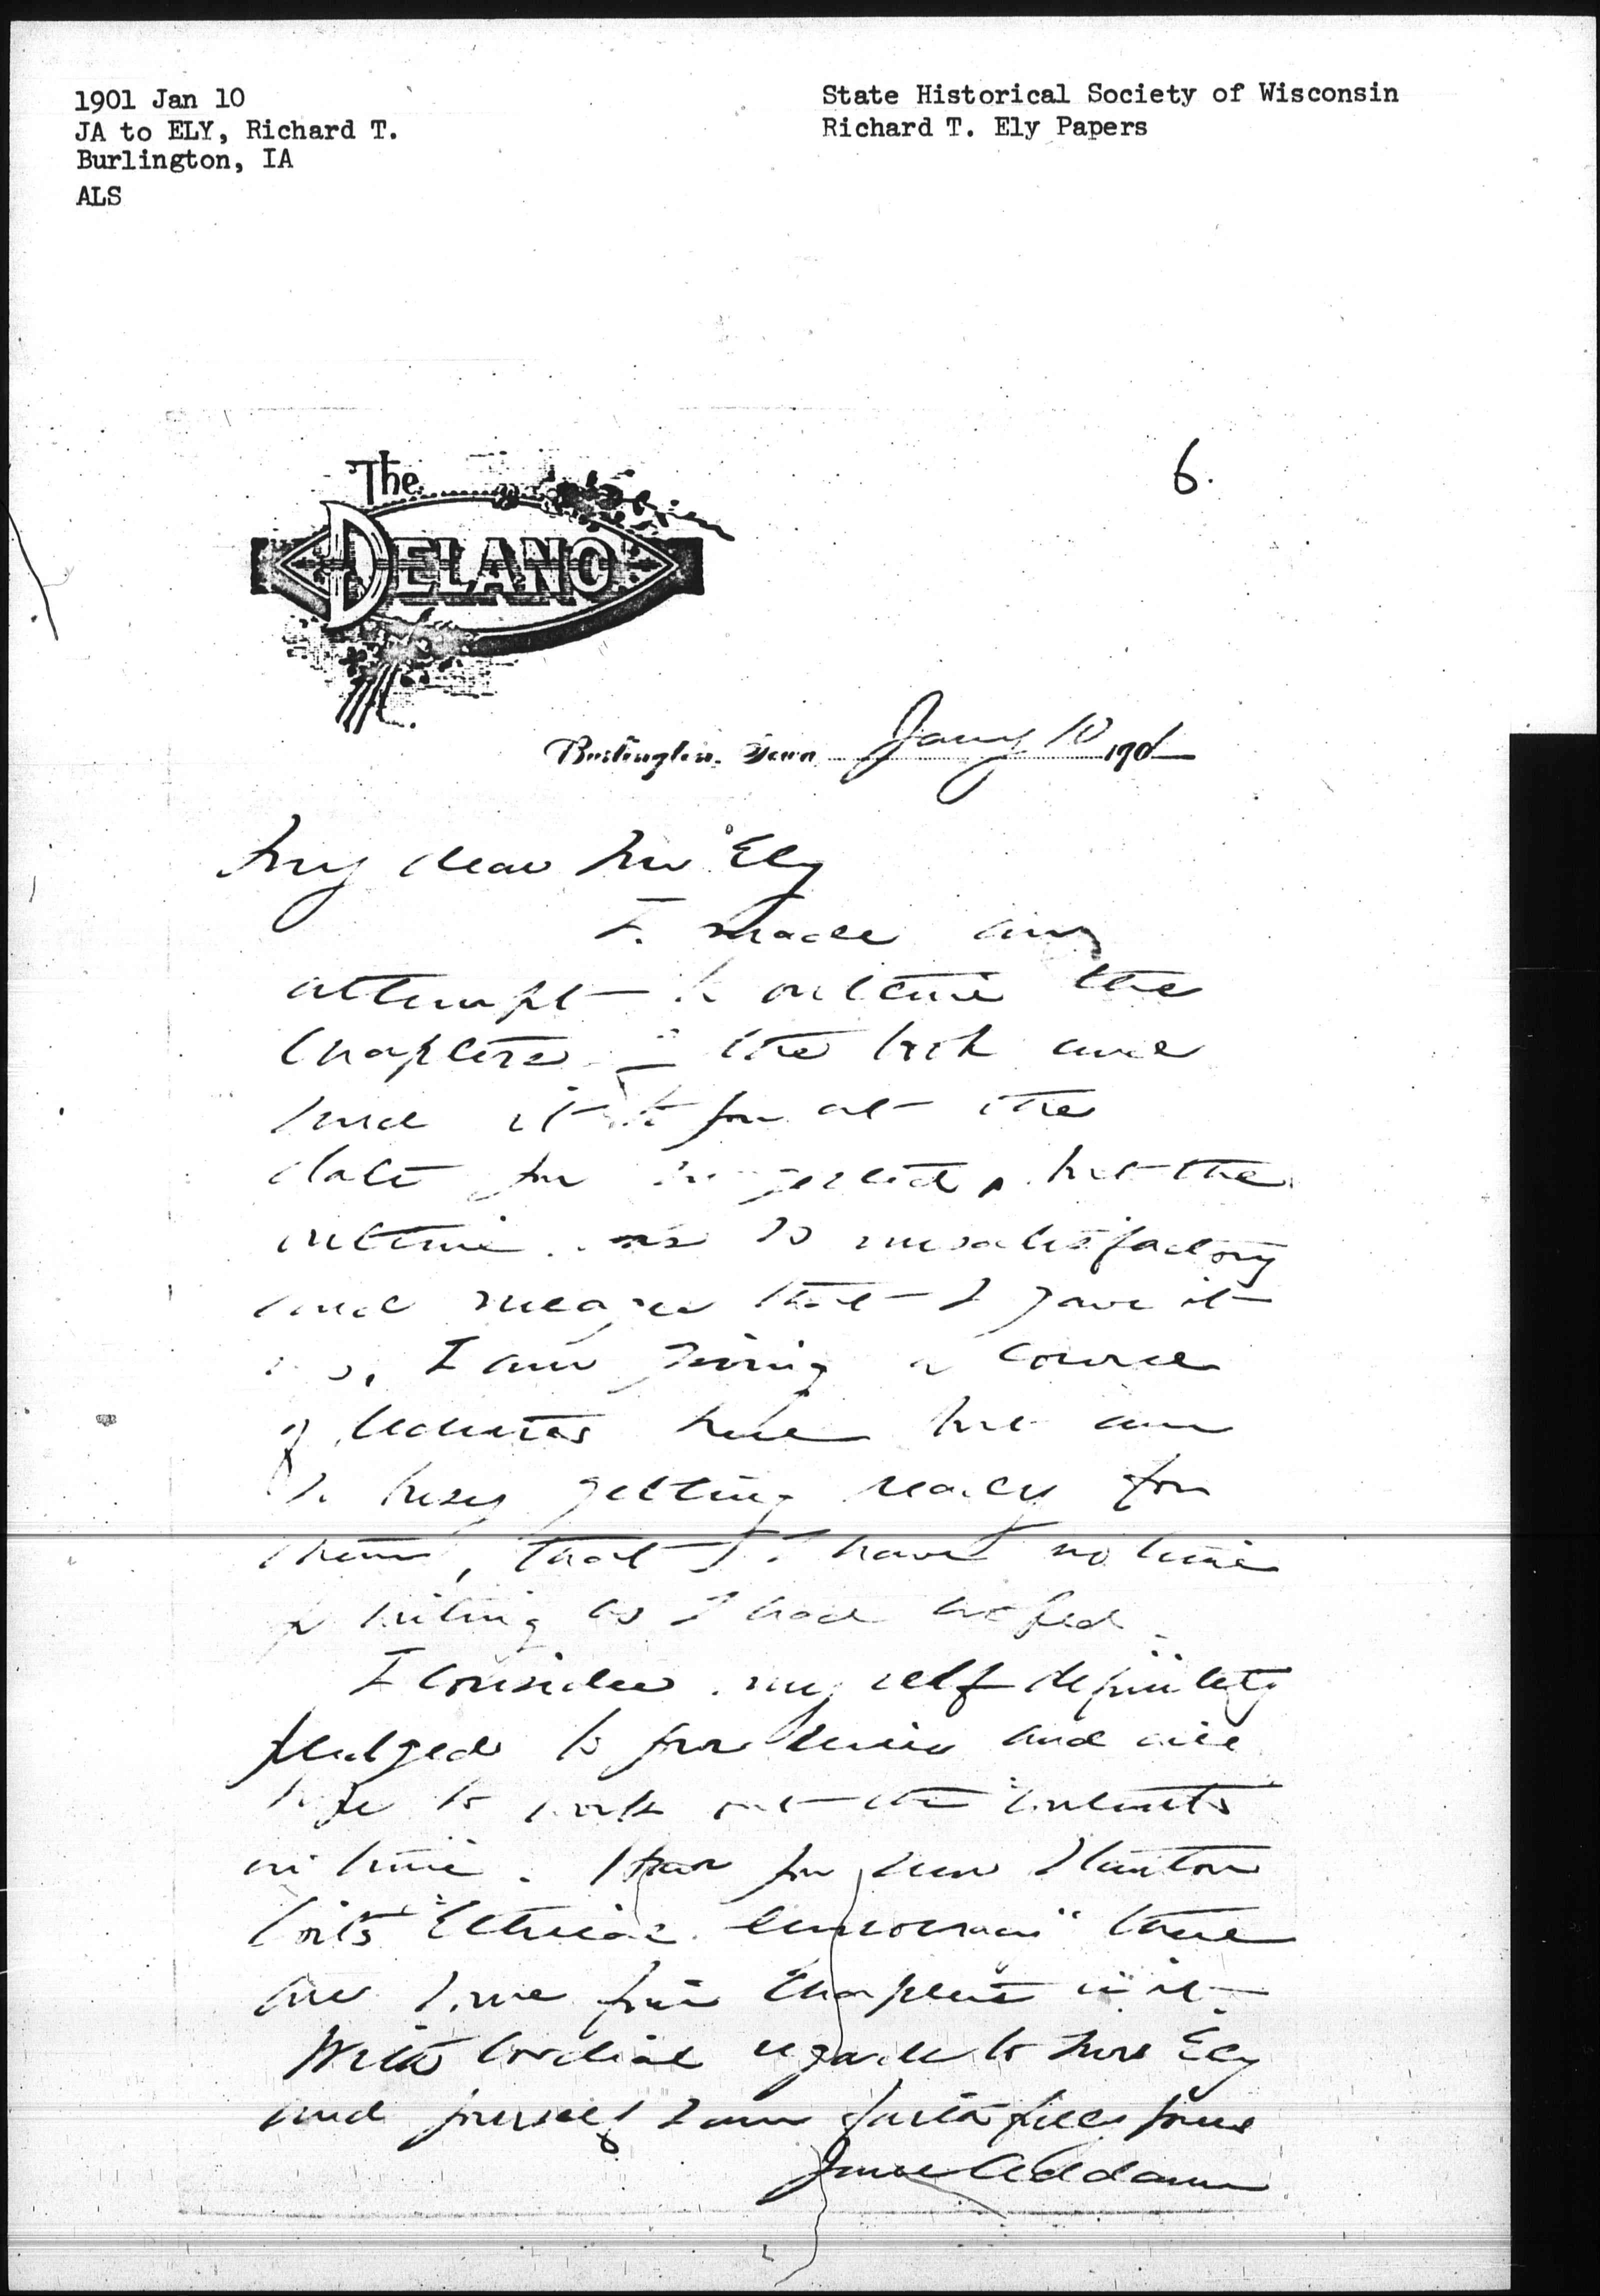 1901 Jan 10
JA to ELY, Richard T.
Burlington, IA
ALS
State Historical Society of Wisconsin
Richard T. Ely Papers
6.
The
DELANO
Burlington, Iowa Jany 10 1901
My dear Mr Ely
I made an
attempt to outline the
chapters of the book and
send it to you at the
date you suggested, but the
outline was so unsatisfactory
and meager that I gave it
up. I am giving a course
of lectures here but am
so busy getting ready for
them, that I have no time
for writing as I had hoped.
I consider my self definitely
pledged to you and will
hope to work out the contents
in time. Stanton
Coit's "Ethical Democracy" there
are some fine chapters in it.
With cordial regards to Mrs Ely
and yourself I am faithfully yours
Jane Addams